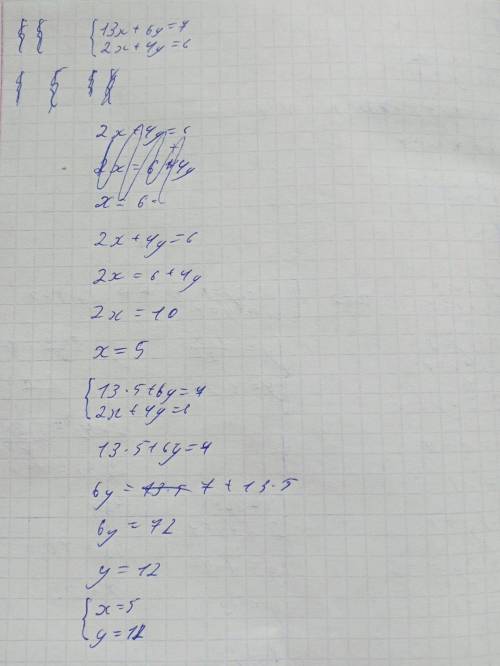 {13x + 6y = 7
2x + 4y = 6
2x + 4y = 6
x = 6 -
2x + 4y = 6
2x = 6 + 4y
2x = 10
x = 5
{13 · 5 + 6y = 7
2x + 4y = 6
13 · 5 + 6y = 7
6y = 7 + 13 · 5
6y = 72
y = 12
{x = 5
y = 12